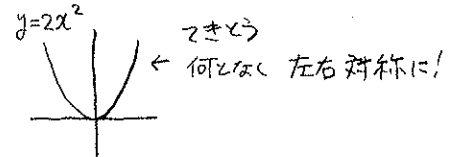 y=2x²
てきとう
← 何となく 左右対称に!